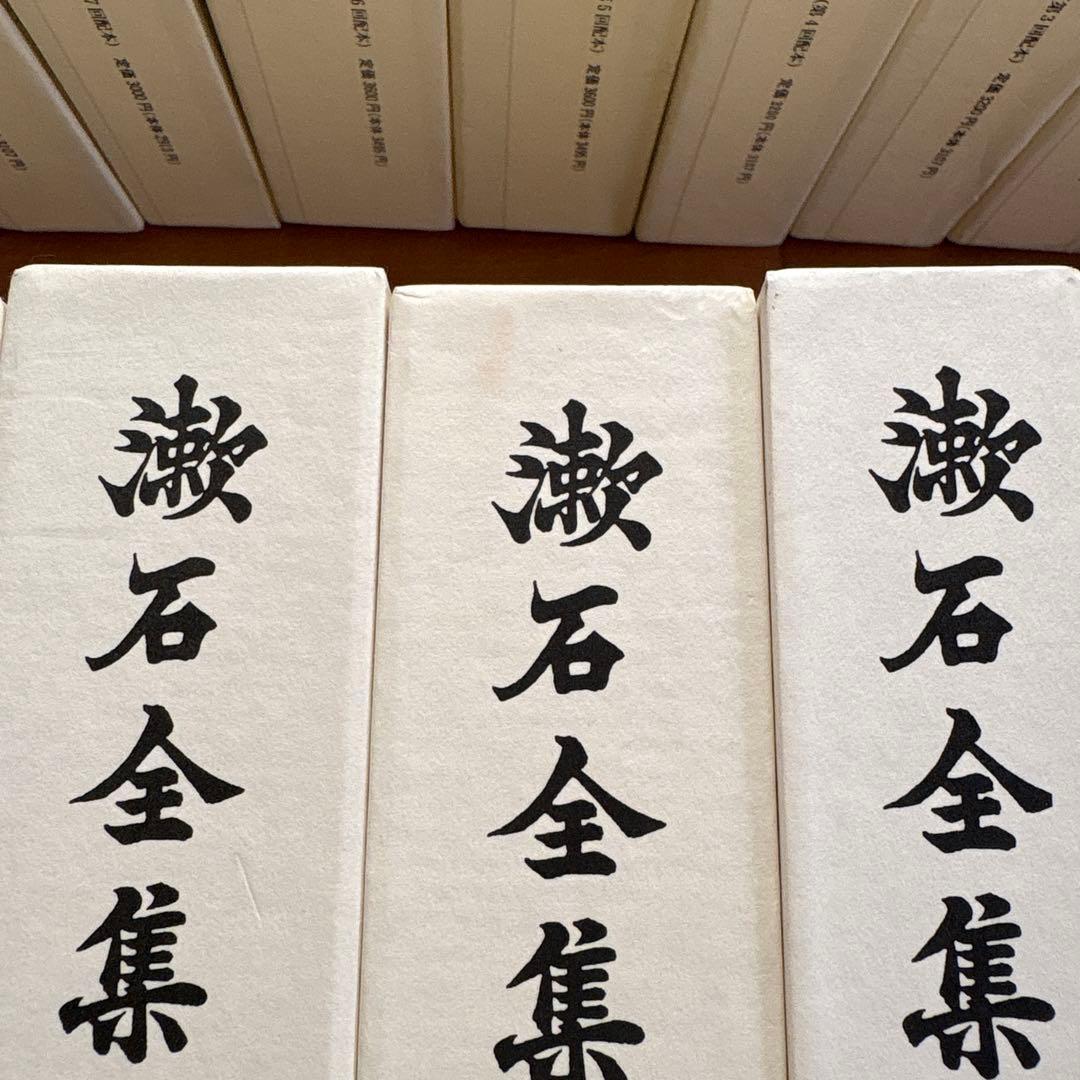 7回配本) 定価 3000円(本体 2913円)
6回配本) 定価 3600円(本体 3495円)
5回配本) 定価 3600円(本体 3495円)
(第4回配本) 定価 3200円(本体 3107円)
第3回配本) 定価 3200円(本体 3107円)
漱石全集
漱石全集
漱石全集